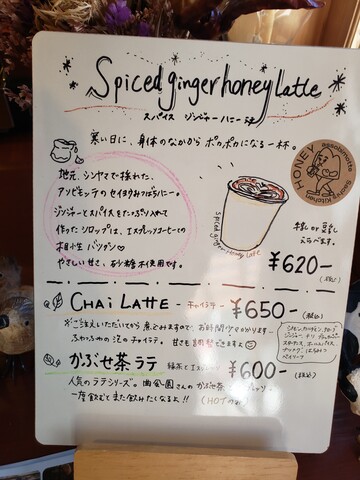 Spiced ginger honey Latte
スパイス ジンジャー ハニー ラテ
寒い日に、身体のなかから ポカポカになる一杯。
地元、シンヤマで採れた、
アソビモンテのセイヨウみつばちハニー。
ジンジャーとスパイスをたっぷり入れて
作ったシロップは、エスプレッソコーヒーとの
相性 バツグン♡
やさしい甘さ、お砂糖不使用です。
HONEY
Spiced ginger Honey Latte
牛乳 or 豆乳
えらべます。
¥620-
(税込)
CHAi LATTE -チャイラテ- ¥650- (税込)
※ご注文いただいてから煮こみますので、お時間少々かかります
ふわっふわの泡のチャイラテ。 甘さも調整できますよ☺
シナモン、カルダモン、クローブ
かぶせ茶ラテ 緑茶とエスプレッソ ¥600- (税込)
人気のラテシリーズ。 幽谷園さんの かぶせ茶
一度飲むとまた飲みたしなるよ!! (HOTのみ)